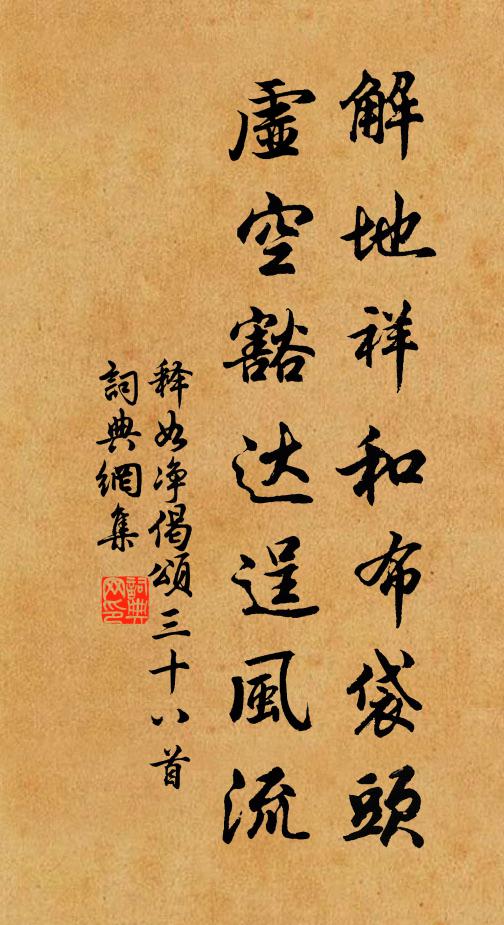 解地祥和布袋頭
虛空豁达逞風流
释如净偈頌三十八首
詞典網集
詞典网印